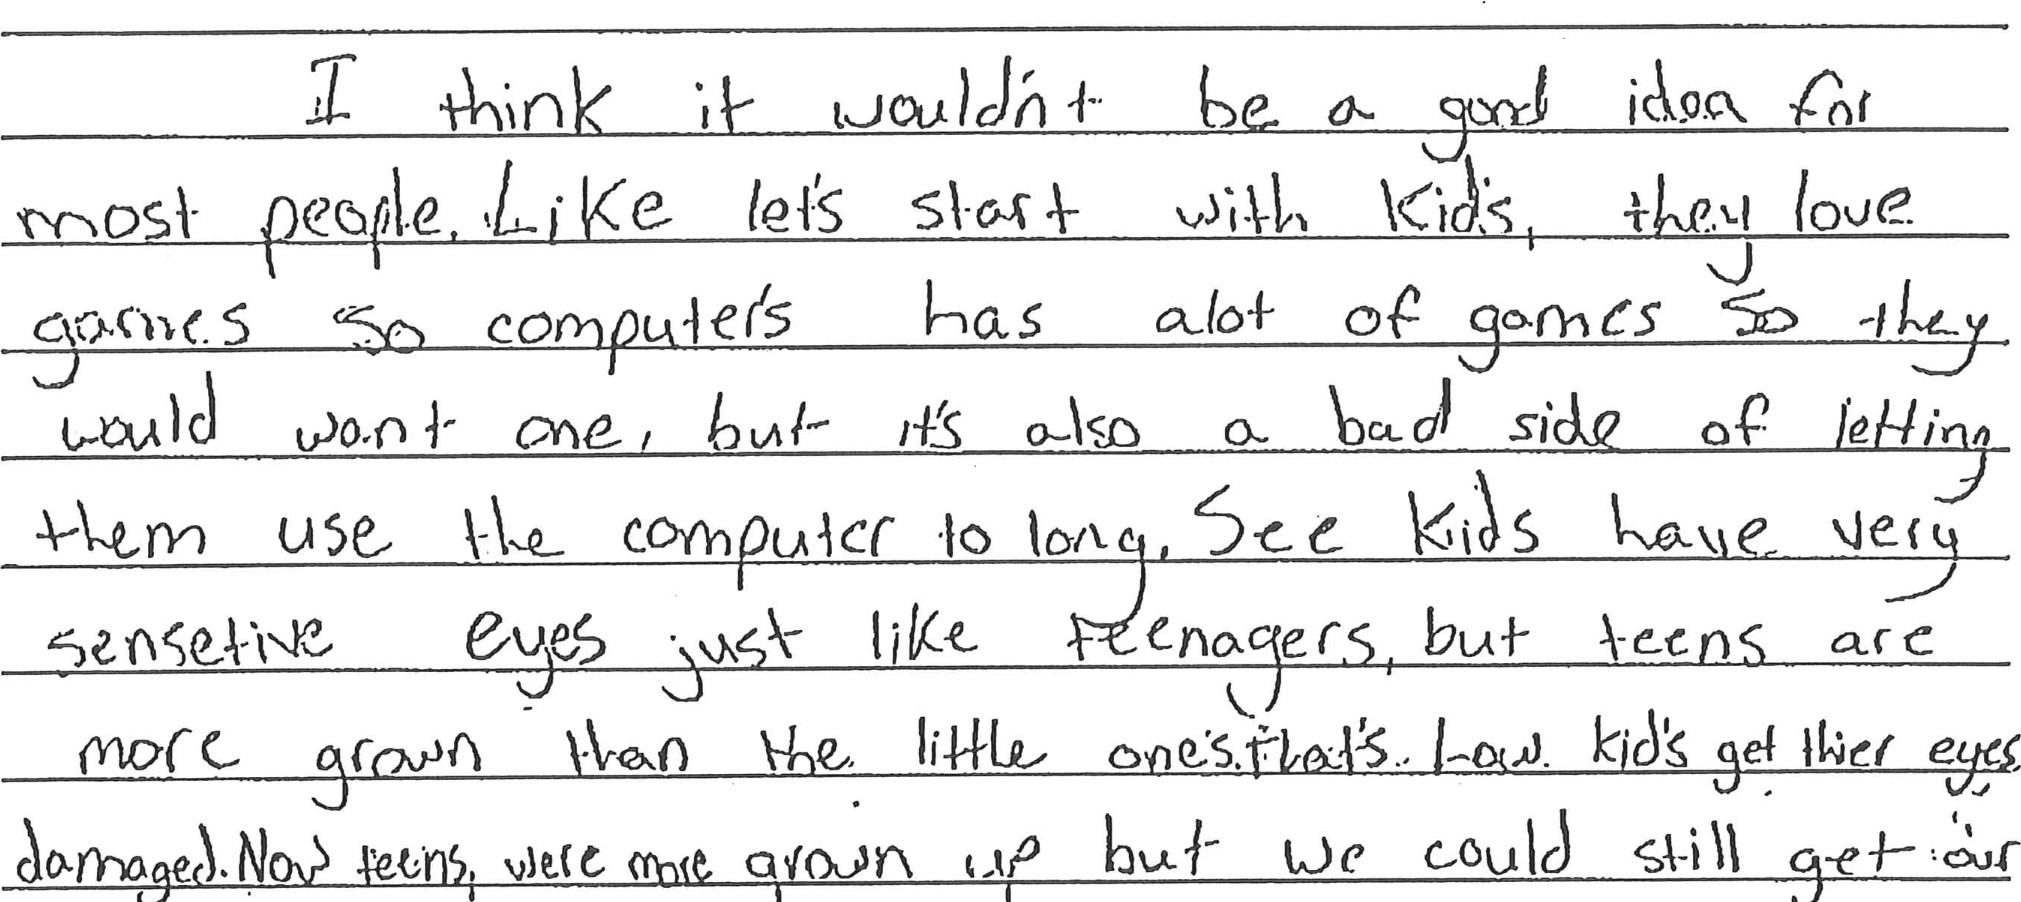 I think it wouldn't be a good idea for
most people. Like let's start with kid's, they love
games so computer's has alot of games so they
would want one, but it's also a bad side of letting
them use the computer to long. See kids have very
sensetive eyes just like teenagers, but teens are
more grown than the little one's. that's how kid's get thier eyes
damaged. Now teens, were more grown up but we could still get our